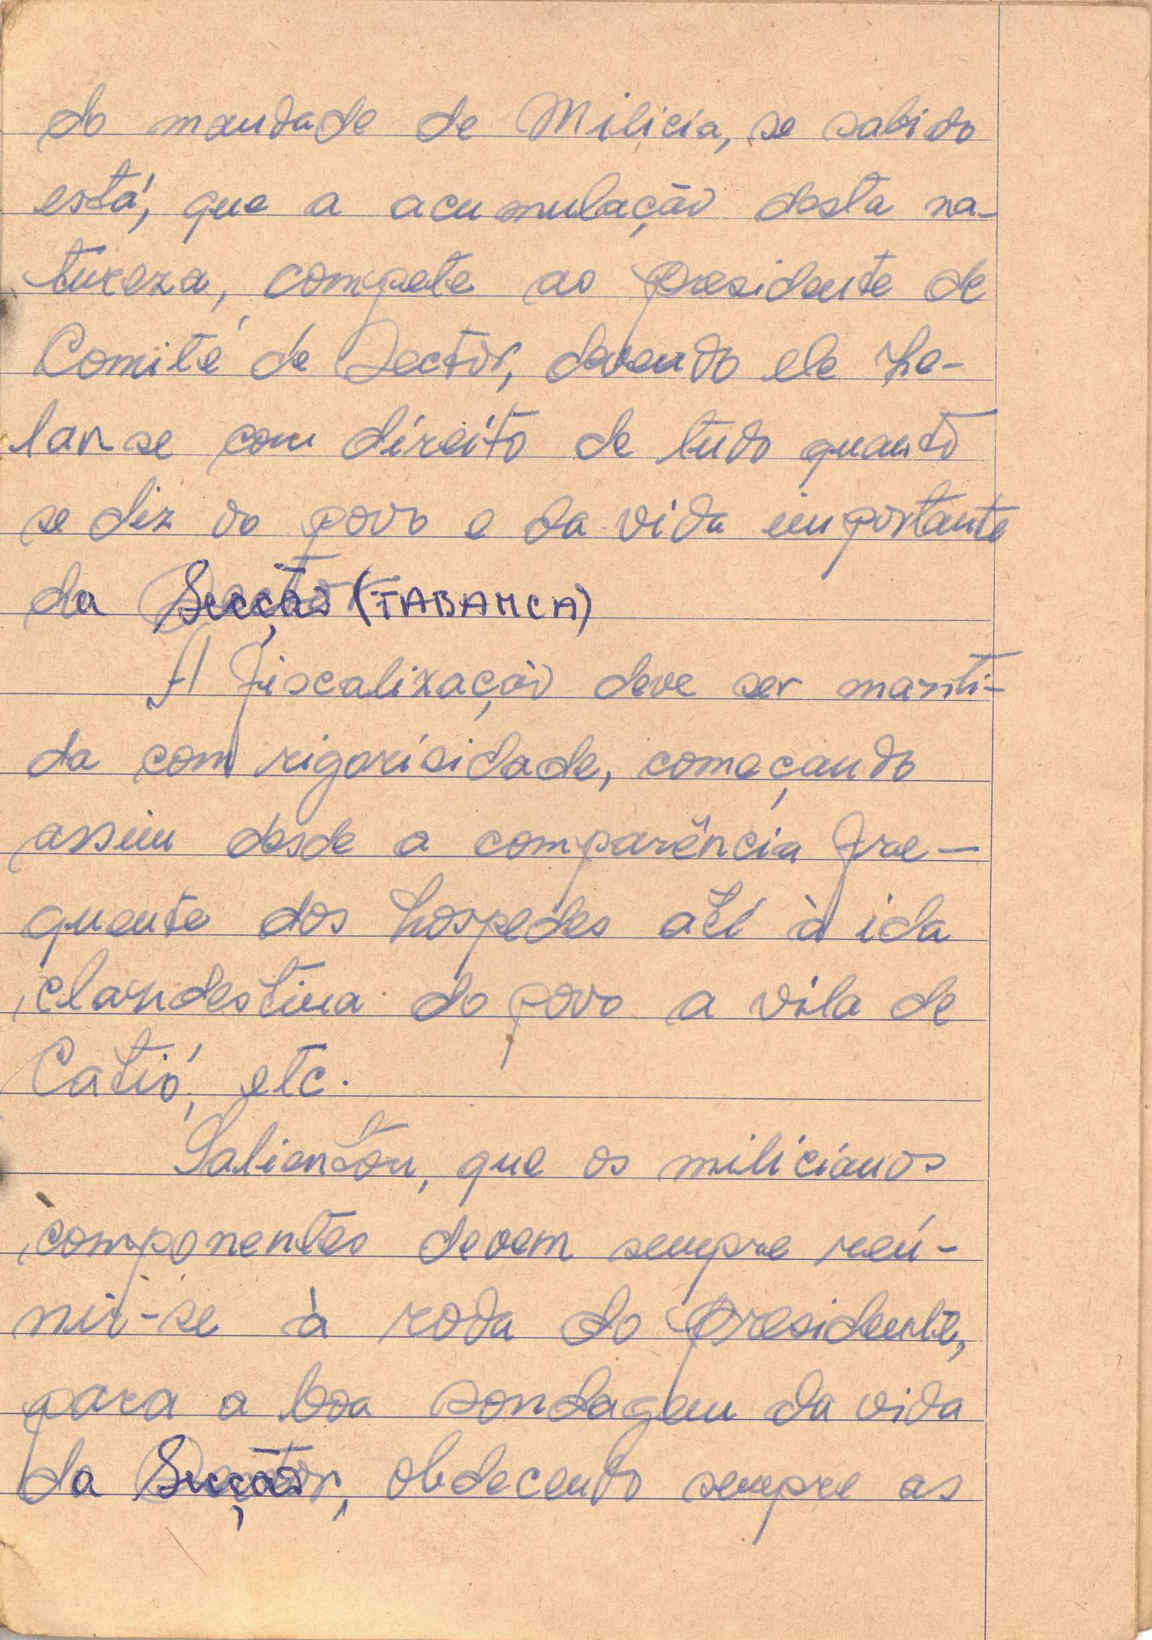 do mandade de Milicia, se sabido
está, que a acumulação desta na-
tureza, compete ao presidente de
Comité de Sector, devendo ele ze-
lar se com direito de tudo quanto
se diz do povo e da vida importante
da Secção (TABANCA)
A fiscalização deve ser manti-
da com rigorisidade, começando
assim desde a comparência fre-
quente dos hospedes até à ida
clandestina do povo a vila de
Catió, etc.
Salientou, que os milicianos
componentes devem sempre reú-
nir-se à roda do presidente,
para a boa sondagem da vida
da Secção, obdecendo sempre as